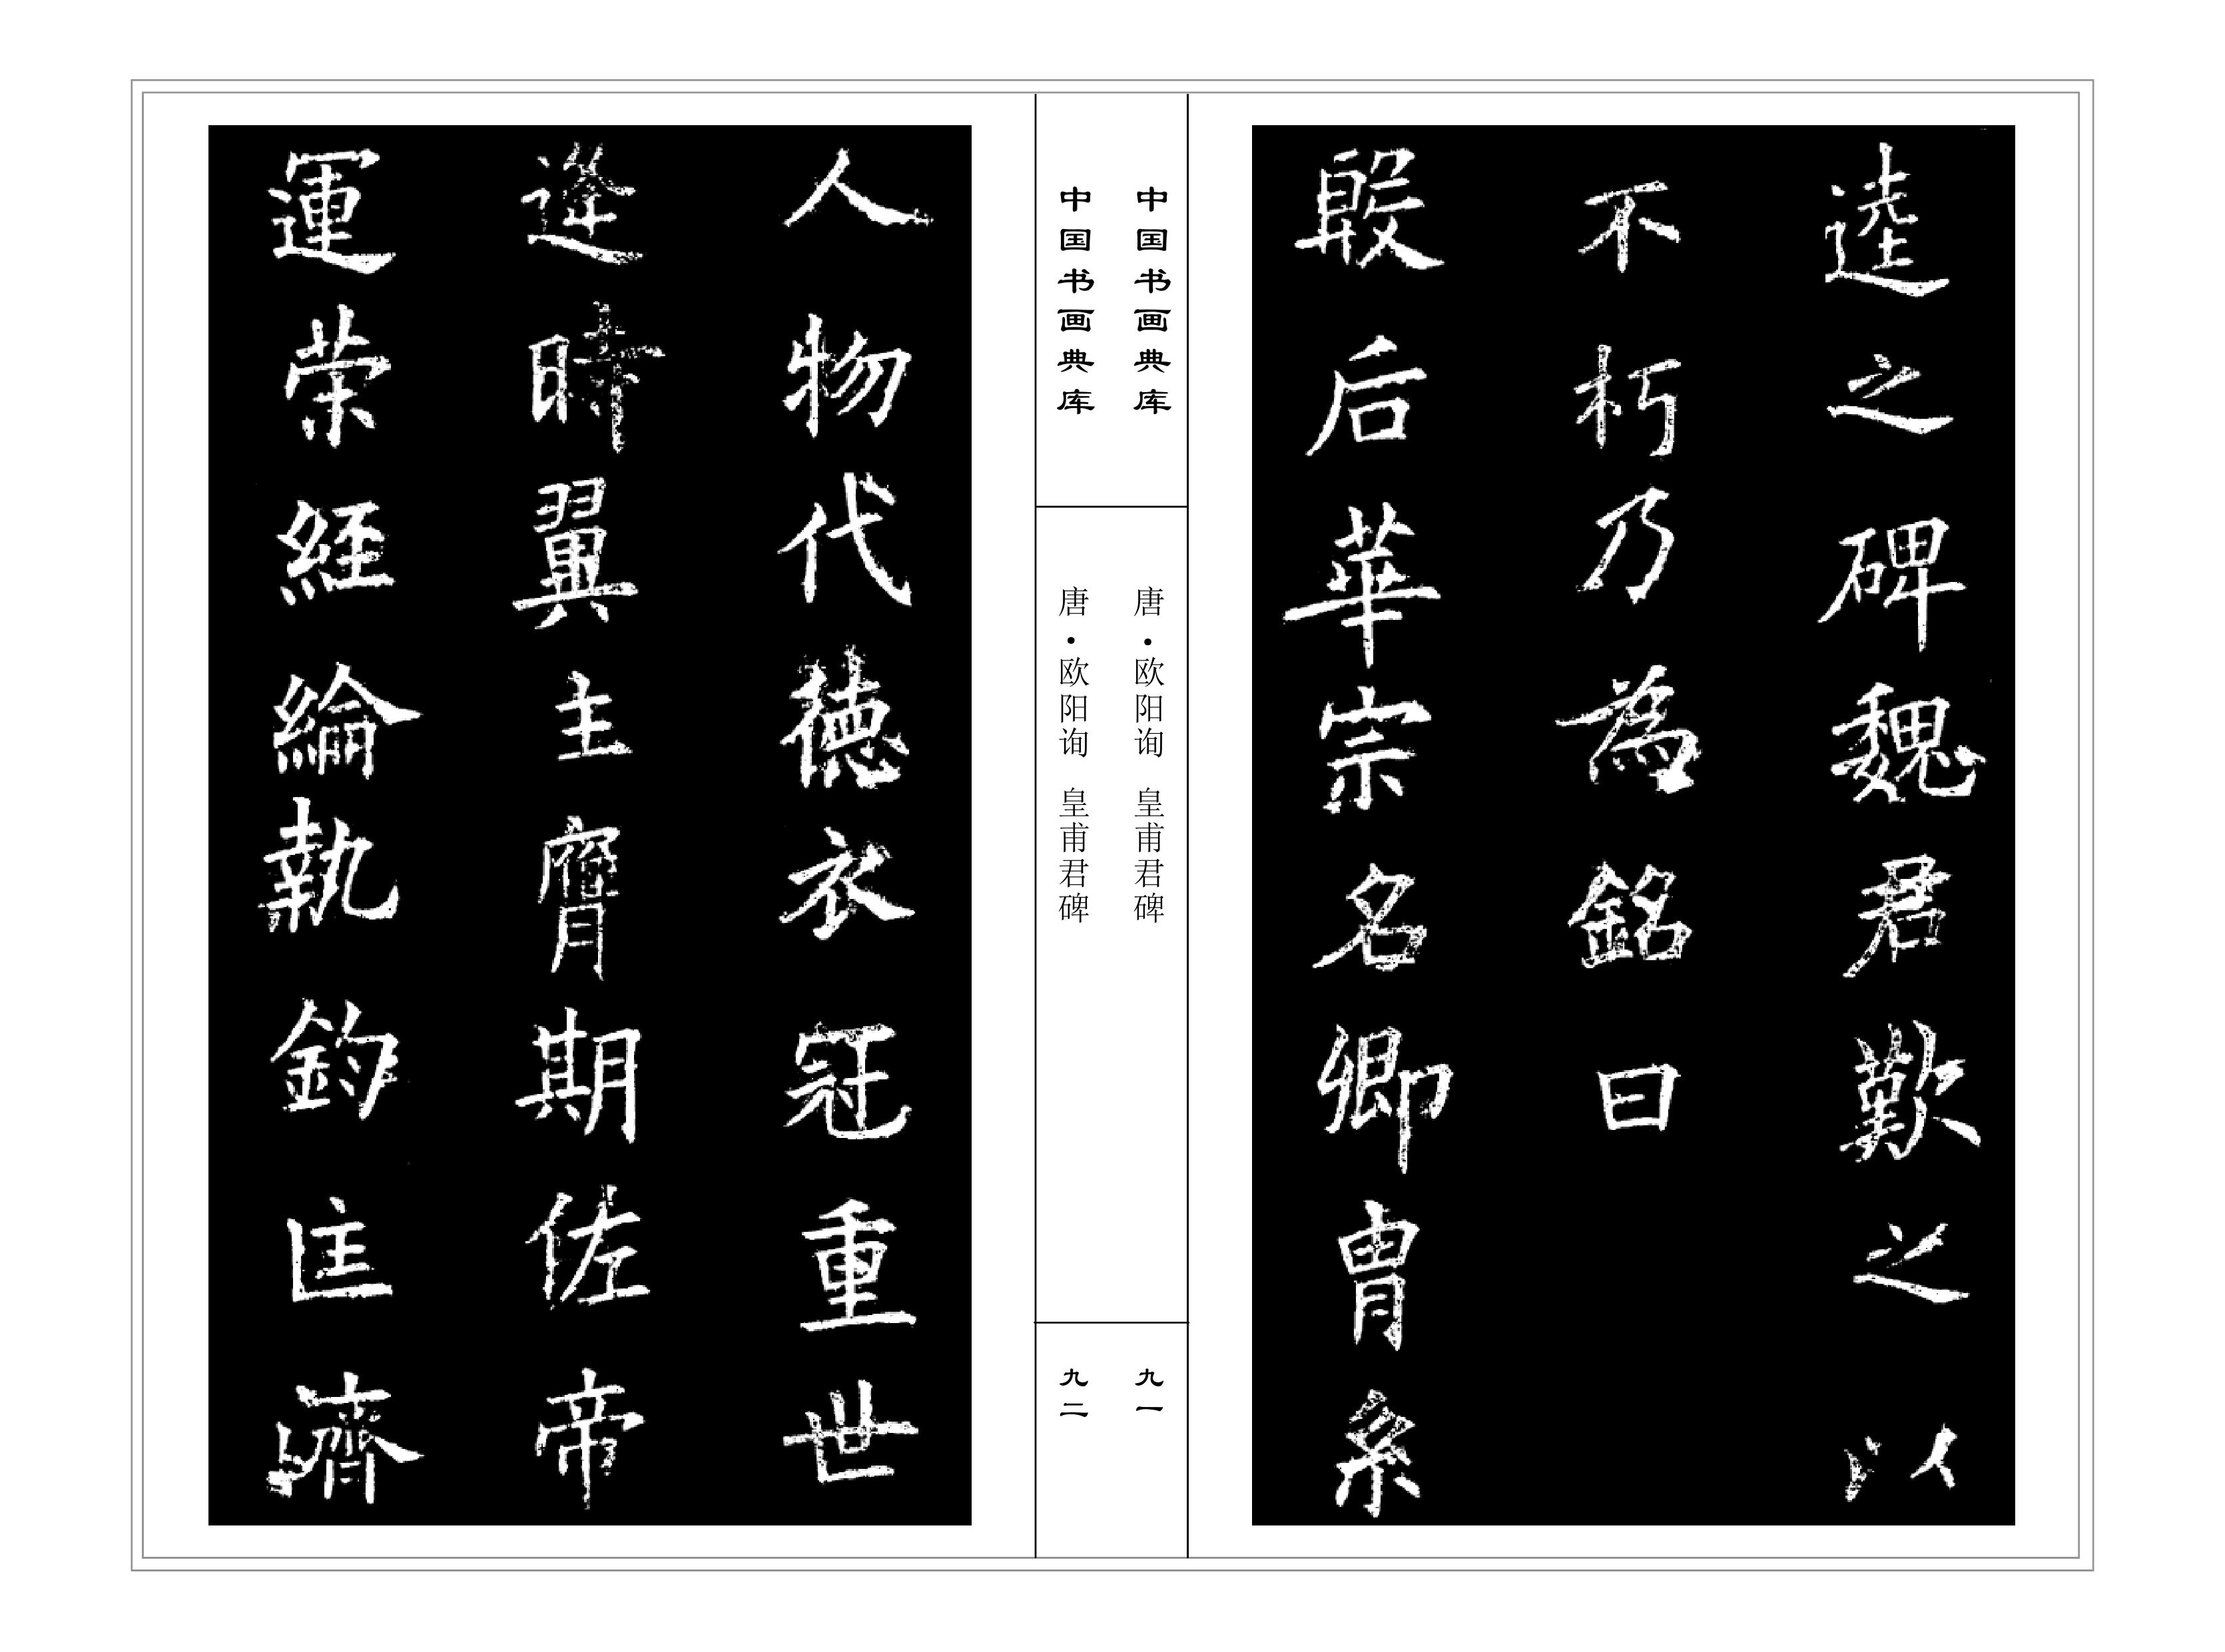 逵之碑魏君歎之以
不朽乃為銘曰
殷后華宗名卿胄系
中国书画典库
唐·欧阳询 皇甫君碑
九一
中国书画典库
唐·欧阳询 皇甫君碑
九二
人物代德衣冠重世
逢時翼主膺期佐帝
運策經綸執鈞匡濟